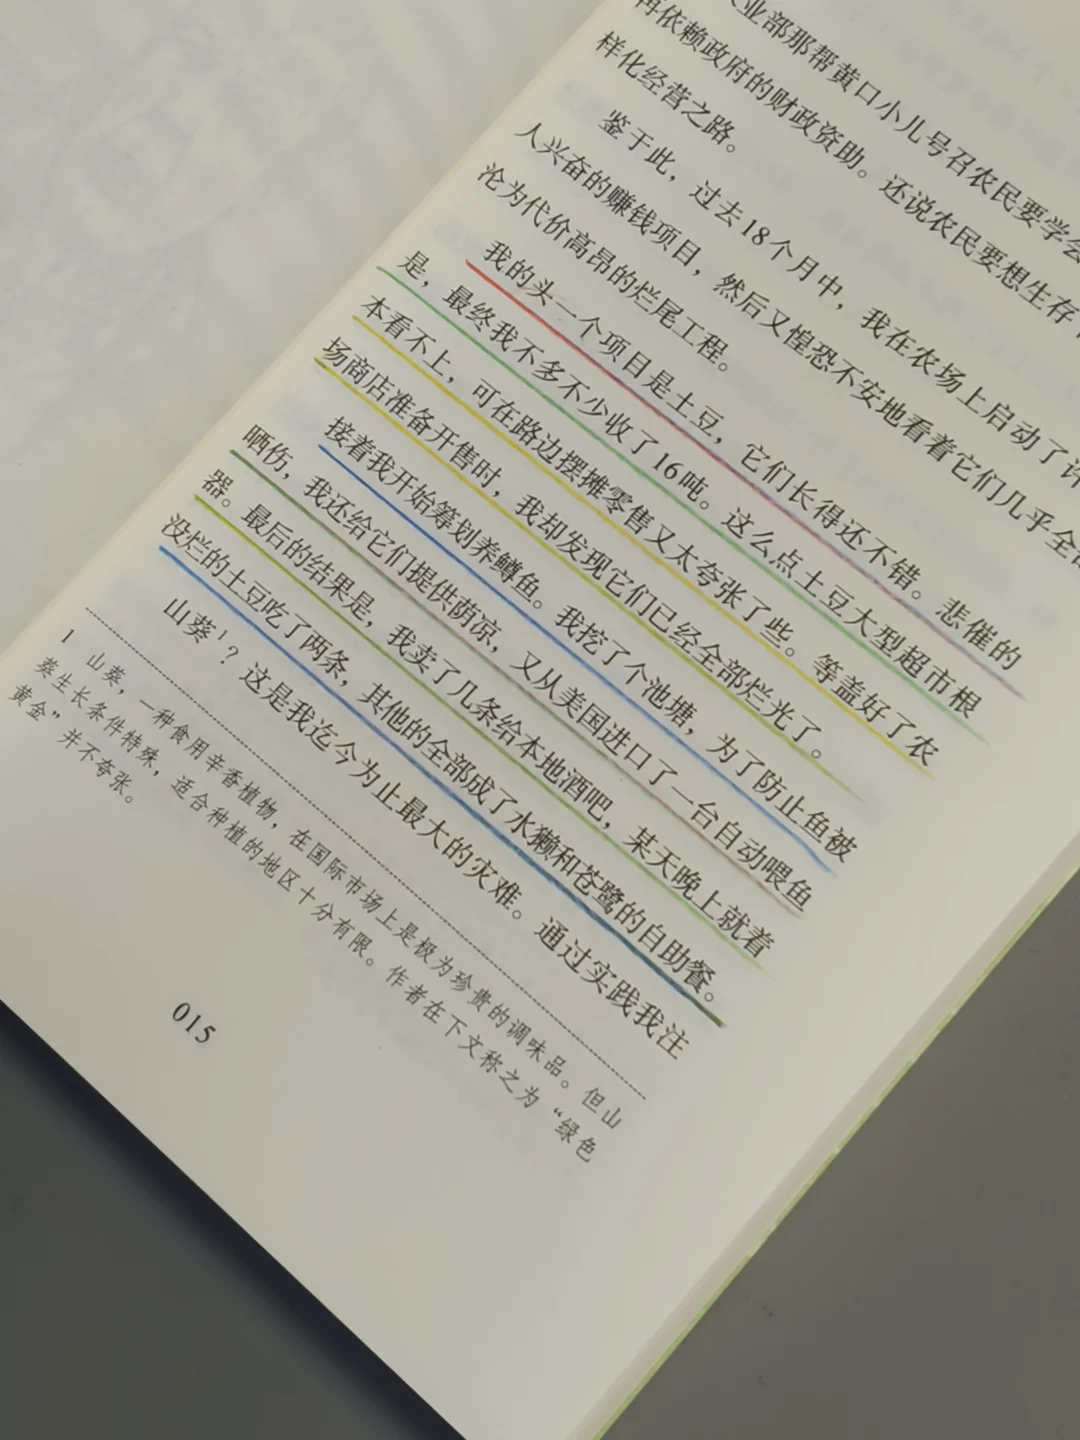 业部那帮黄口小儿号召农民要学会
再依赖政府的财政资助。还说农民要想生存
样化经营之路。
鉴于此，过去18个月中，我在农场上启动了许
人兴奋的赚钱项目，然后又惶恐不安地看着它们几乎全部
沦为代价高昂的烂尾工程。
我的头一个项目是土豆，它们长得还不错。悲催的
是，最终我不多不少收了16吨。这么点土豆大型超市根
本看不上，可在路边摆摊零售又太夸张了些。等盖好了农
场商店准备开售时，我却发现它们已经全部烂光了。
接着我开始筹划养鳟鱼。我挖了个池塘，为了防止鱼被
晒伤，我还给它们提供荫凉，又从美国进口了一台自动喂鱼
器。最后的结果是，我卖了几条给本地酒吧，某天晚上就着
没烂的土豆吃了两条，其他的全部成了水獭和苍鹭的自助餐。
山葵¹？这是我迄今为止最大的灾难。通过实践我注
1 山葵，一种食用辛香植物，在国际市场上是极为珍贵的调味品。但山
葵生长条件特殊，适合种植的地区十分有限。作者在下文称之为“绿色
黄金”并不夸张。
015